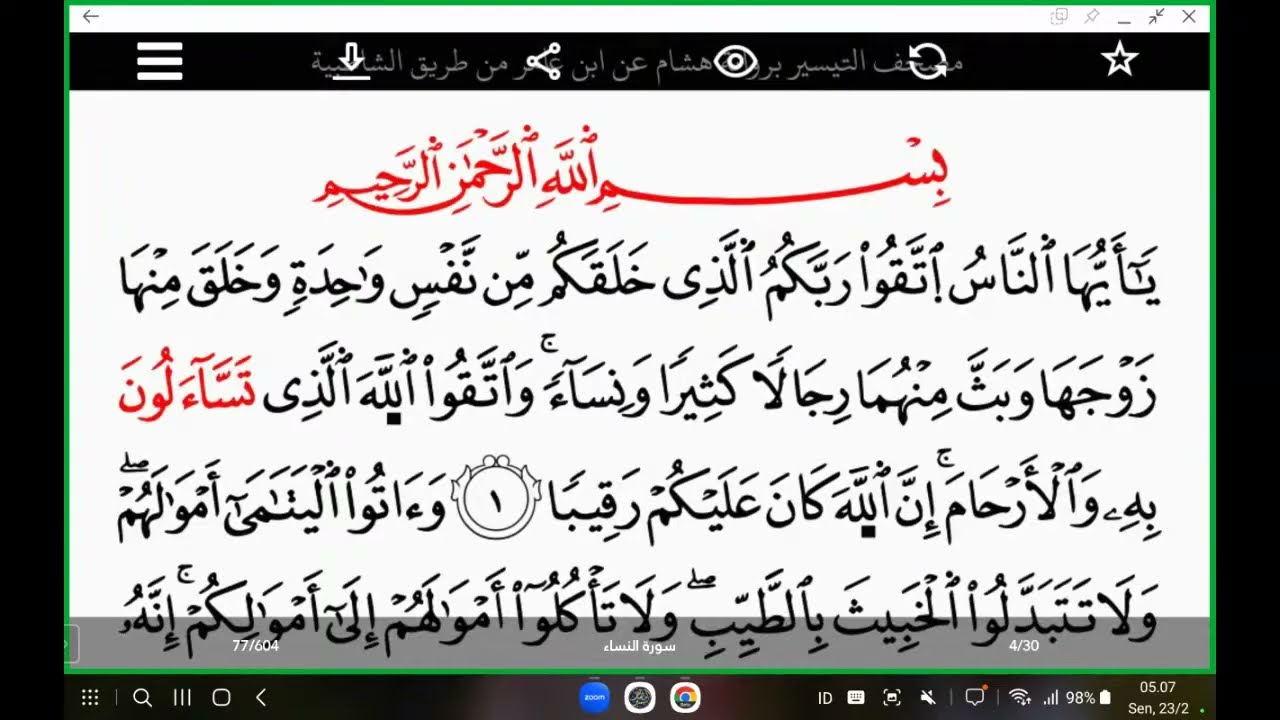 مصحف التيسير برواية هشام عن ابن عامر من طريق الشاطبية
بِسْمِ ٱللَّهِ ٱلرَّحْمَٰنِ ٱلرَّحِيمِ
يَٰٓأَيُّهَا ٱلنَّاسُ ٱتَّقُوا۟ رَبَّكُمُ ٱلَّذِى خَلَقَكُم مِّن نَّفْسٍ وَٰحِدَةٍ وَخَلَقَ مِنْهَا
زَوْجَهَا وَبَثَّ مِنْهُمَا رِجَالًا كَثِيرًا وَنِسَآءً ۚ وَٱتَّقُوا۟ ٱللَّهَ ٱلَّذِى تَسَّآءَلُونَ
بِهِۦ وَٱلْأَرْحَامَ ۚ إِنَّ ٱللَّهَ كَانَ عَلَيْكُمْ رَقِيبًا ١ وَءَاتُوا۟ ٱلْيَتَٰمَىٰٓ أَمْوَٰلَهُمْ ۖ
وَلَا تَتَبَدَّلُوا۟ ٱلْخَبِيثَ بِٱلطَّيِّبِ ۖ وَلَا تَأْكُلُوٓا۟ أَمْوَٰلَهُمْ إِلَىٰٓ أَمْوَٰلِكُمْ ۚ إِنَّهُۥ
4/30 سورة النساء 77/604
zoom ID 98% 05.07
Sen, 23/2